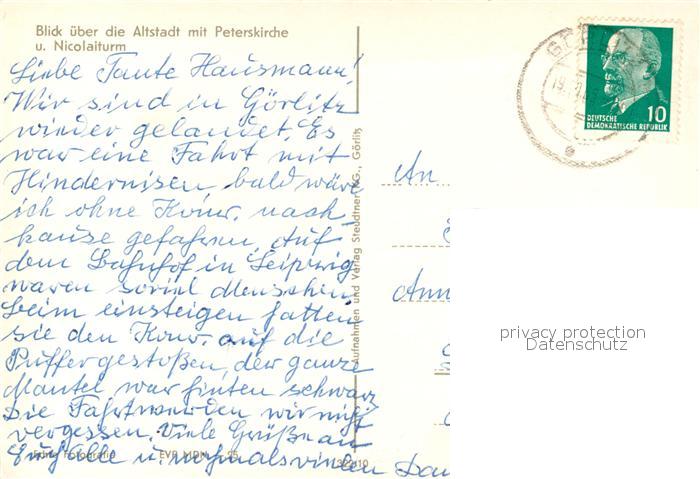 Blick über die Altstadt mit Peterskirche
u. Nicolaiturm
Liebe Tante Hausmann!
Wir sind in Görlitz
wieder gelandet. Es
war eine Fahrt mit
Hindernisen, bald wäre
ich ohne Konr. nach
hause gefahren. Auf
dem Bahnhof in Leipzig
waren soviel Menschen,
beim einsteigen hatten
sie den Konr. auf die
Puffer gestoßen, der ganze
Mantel war hinten schwarz
Die Fahrt werden wir nicht
vergessen. Viele Grüße an
Euch alle u. nochmals vielen Dan
Echte Fotografie EVP MDN -,25
Aufnahmen und Verlag Steudtner KG., Görlitz
An
10
DEUTSCHE
DEMOKRATISCHE REPUBLIK
privacy protection
Datenschutz